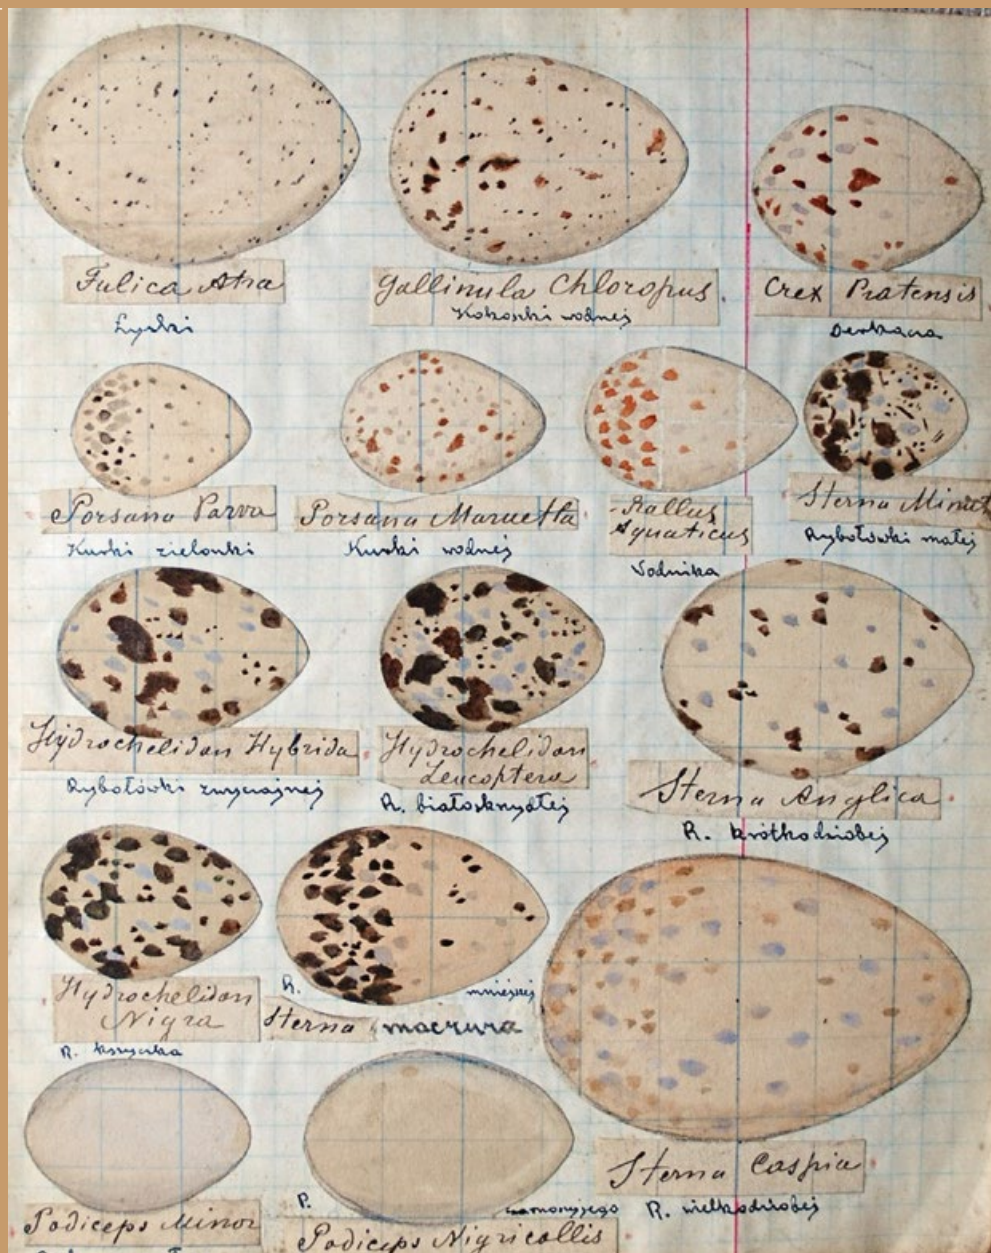 Fulica Atra
Łyski
Gallinula Chloropus.
Kokoszki wodnej
Crex Pratensis
Derkacza
Porsana Parva
Kurki zielonki
Porsana Maruetta
Kurki wodnej
Rallus
Aquaticus
Wodnika
Sterna Minut
Rybołówki małej
Hydrochelidon Hybrida
Rybołówki zwyczajnej
Hydrochelidon
Leucoptera
R. białoskrzydłej
Sterna Anglica
R. krótkodziobej
Hydrochelidon
Nigra
R.
R. mniejszej
Sterna macrura
Sterna Caspia
R. wielkodziobej
Podiceps Minor
P.
Podiceps Nigricollis